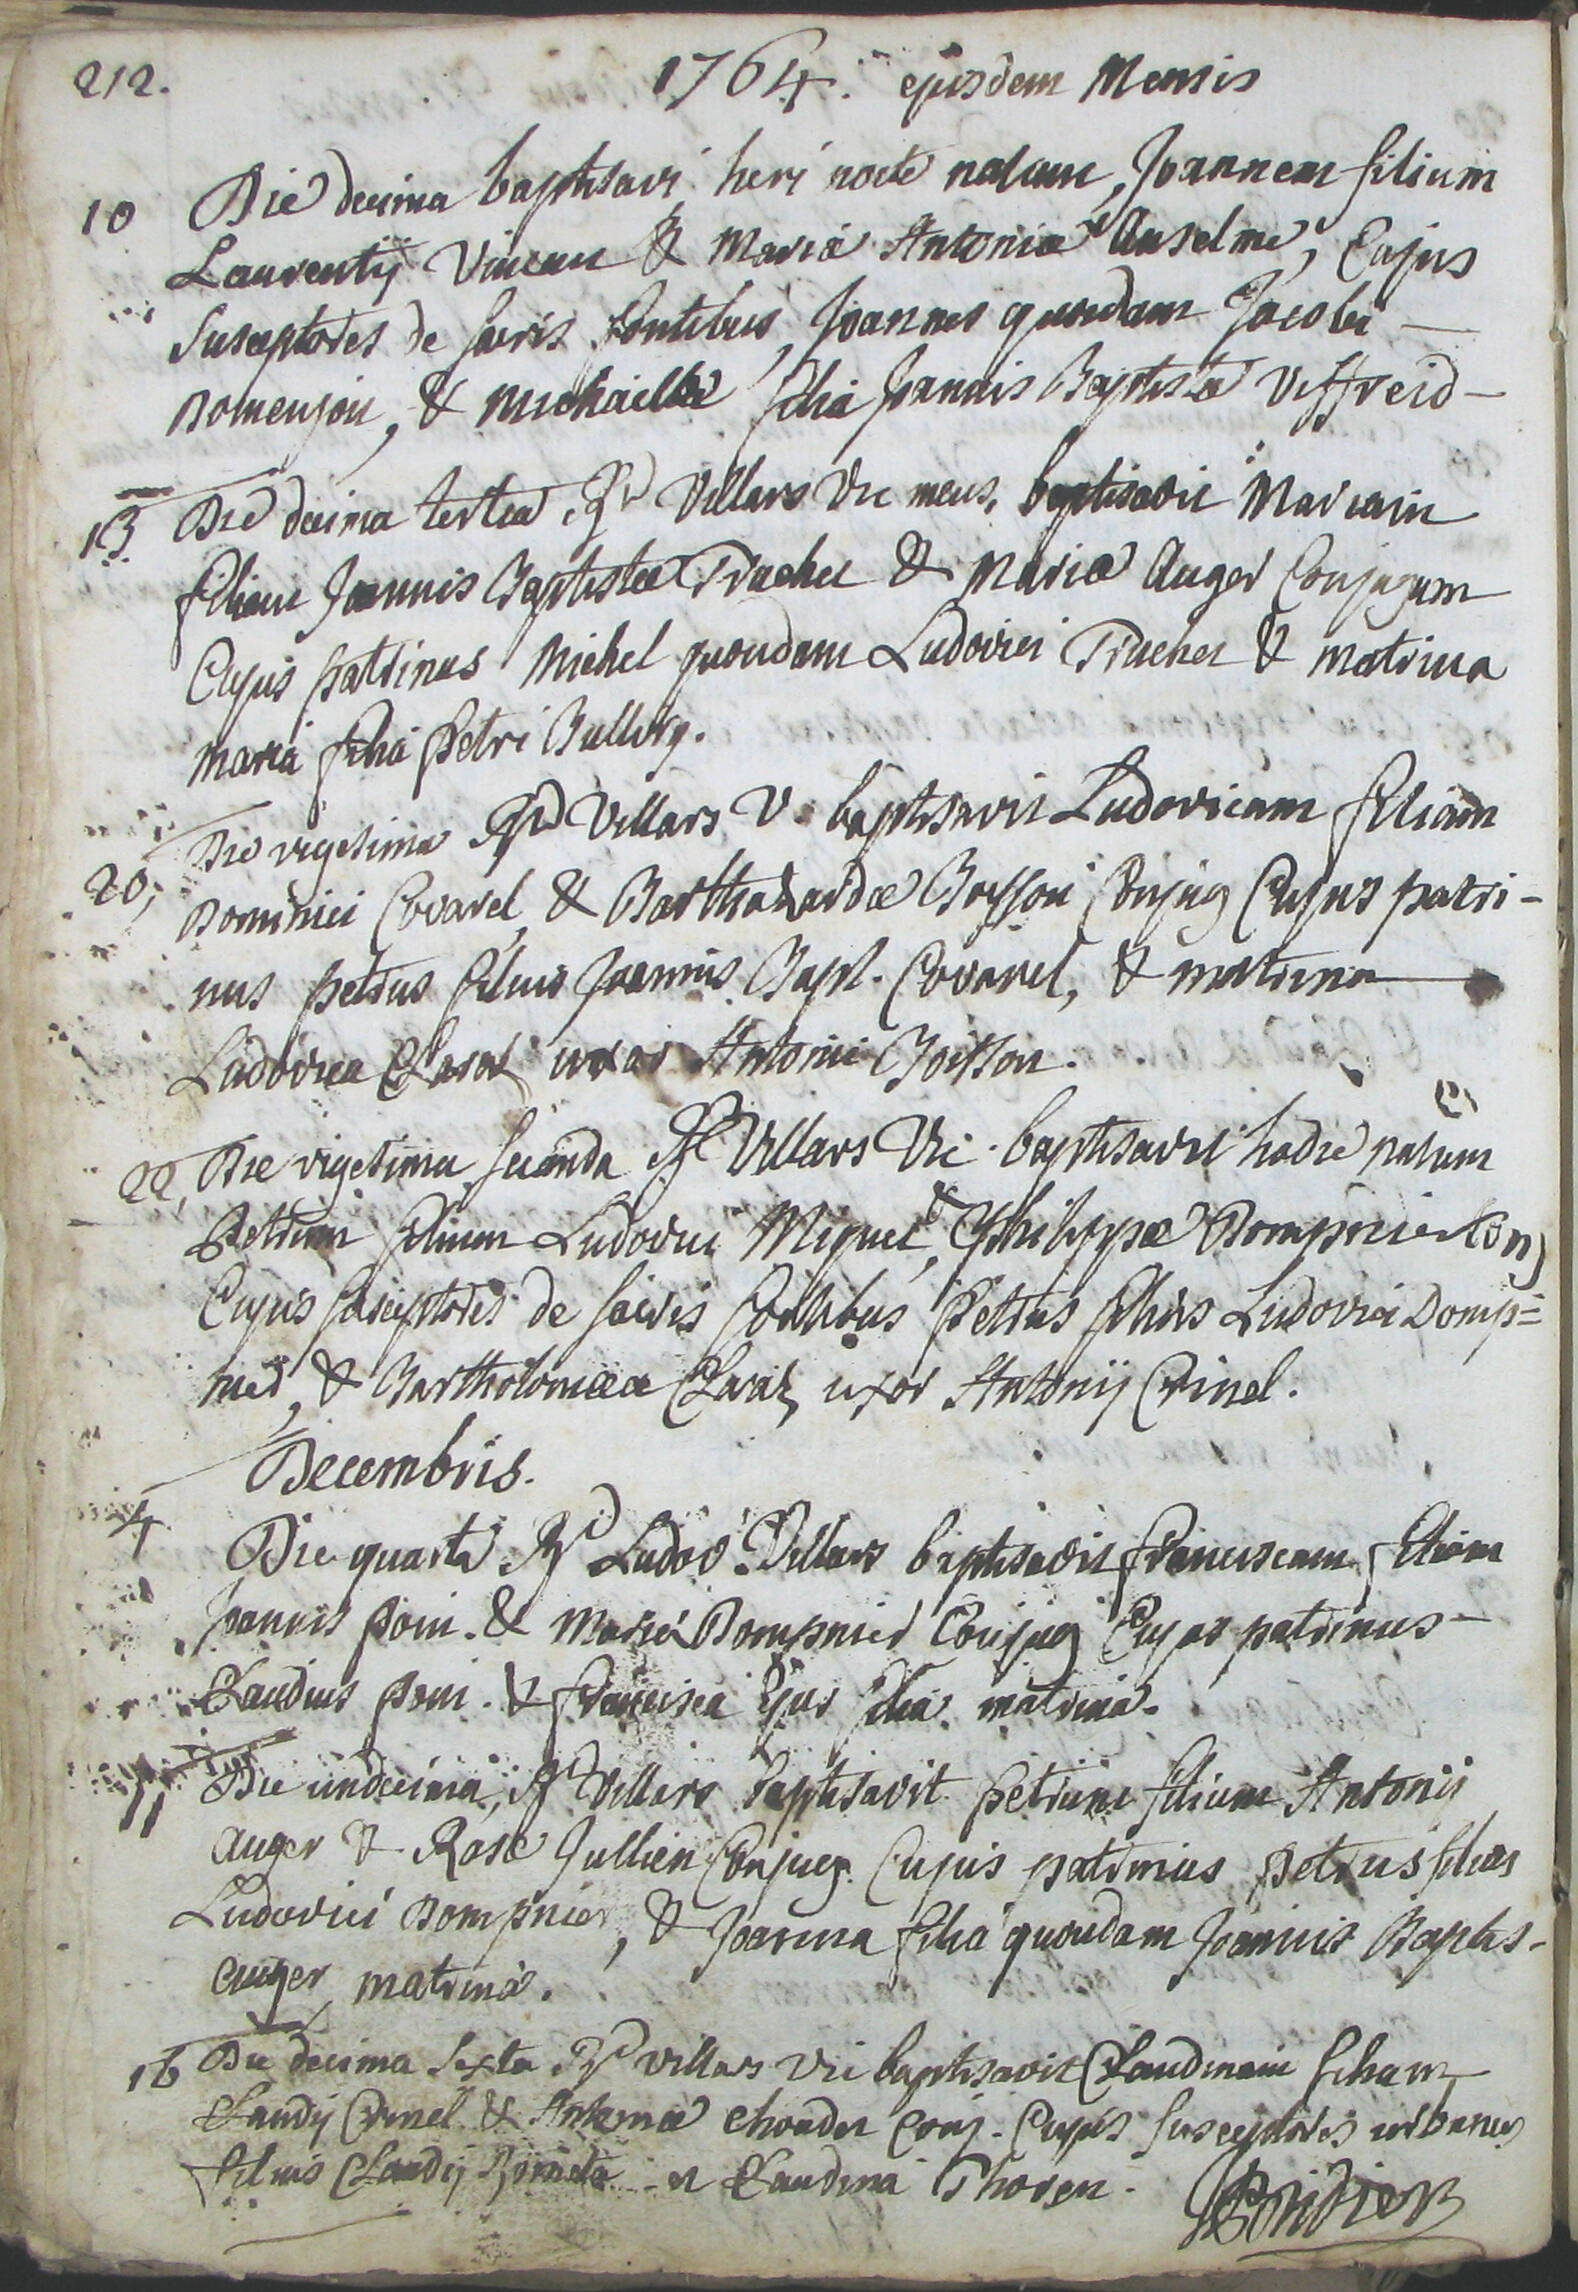 212. 1764. ejusdem Mensis
10 Die decima baptisavi heri nocte natum, Joannem filium
Laurentij Vincen & Mariæ Antoniæ Anselme, Cujus
Susceptores de sacris fontibus, Joannes quondam Jacobi
Domenjon, & Michaella filia Joannis Baptistæ Viffreid
13. Die decima tertia Rd Villars Vic meus, baptisavit Mariam
filiam Joannis Baptistæ Truchet & Mariæ Auger Conjugum
Cujus patrinus Michel quondam Ludovici Truchet & matrina
maria filia Petri Bullery.
20, Die vigesima Rd Villars V. baptisavit Ludovicam filiam
Dominici Covarel, & Bartha Boisson Conjug Cujus patri-
nus petrus filius Joannis Bapt. Covarel, & matrina
Ludovica Claraz uxor Antonii Boisson.
22, Die vigesima secunda Rd Villars Vic. baptisavit hodie natum
Petrum filium Ludovici Miquet, & Philippæ Dompnier Conj
Cujus susceptores de sacris fontibus Petrus filius Ludovici Domp=
nier, & Bartholomæa Claraz uxor Antonij Crinel.
Decembris.
4 Die quarta Rd Ludov. Villars baptisavit franciscam filiam
Joannis Pom. & Mariæ Dompnier Conjug Cujus patrinus
Claudius Pom. & francisca ejus filia matrina.
11 Die undecima, Rd Villars baptisavit petrum filium Antonii
Auger & Rosæ Jullien Conjug. Cujus patrinus petrus filius
Ludovici Dompnier, & Joanna filia quondam Joannis Baptis-
Auger matrina.
16 Die decima sexta Rd Villars Vic baptisavit Claudinam filiam
Claudij Crinel & Antoniæ Choudet Conj. Cujus Susceptores urbanus
filius Claudij et Claudina Thoren.